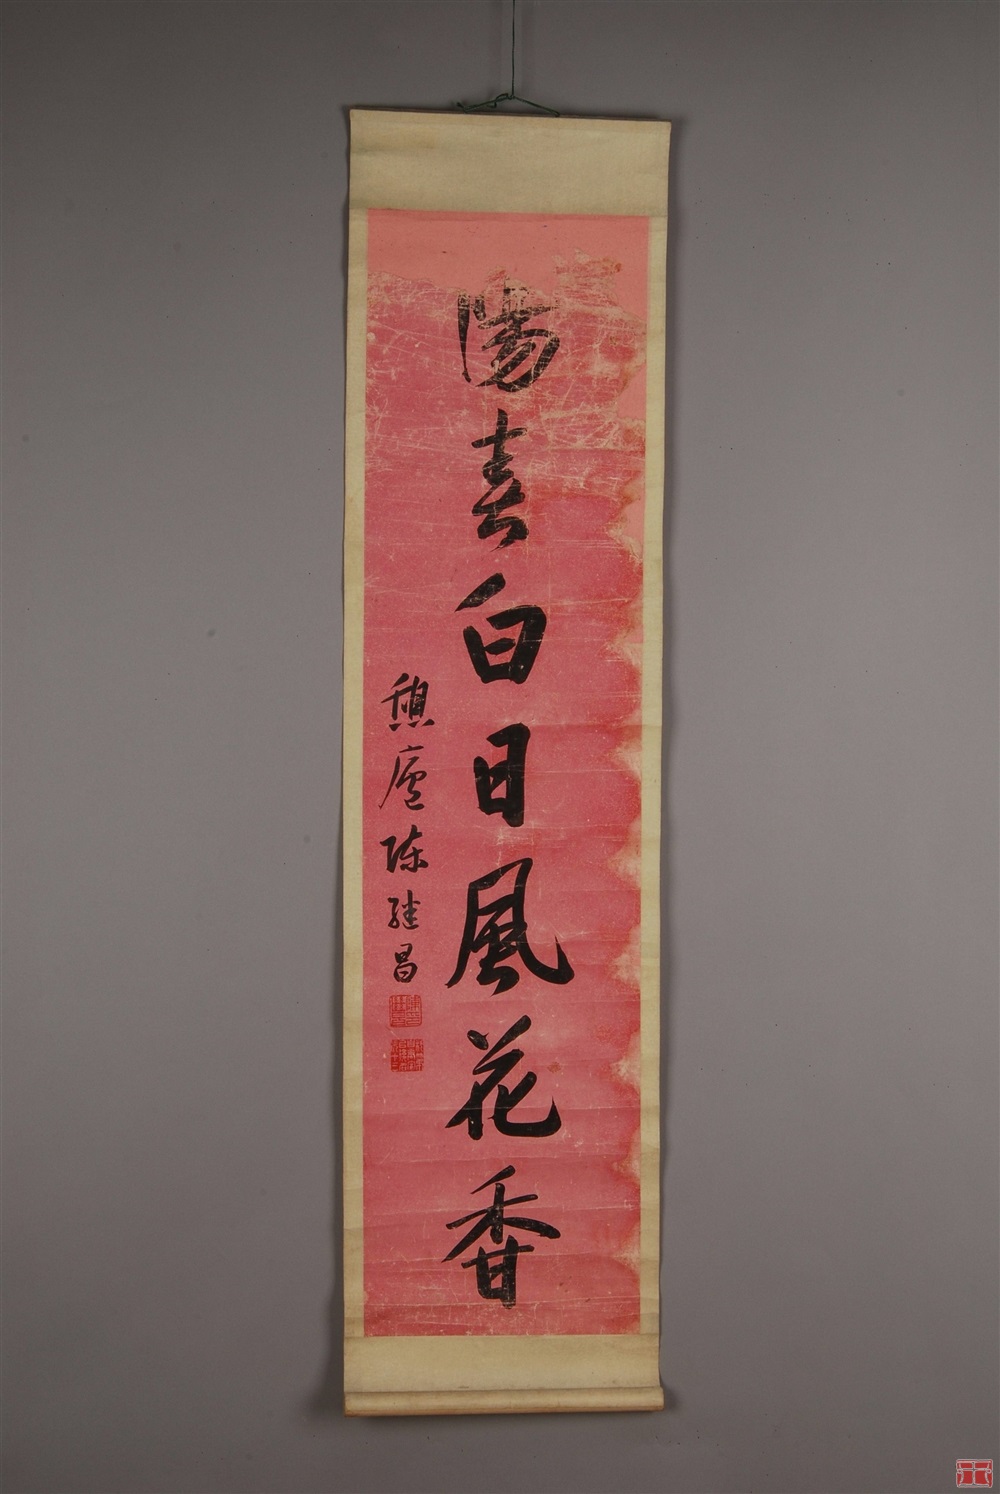 陽春白日風花香
憩廬陳继昌